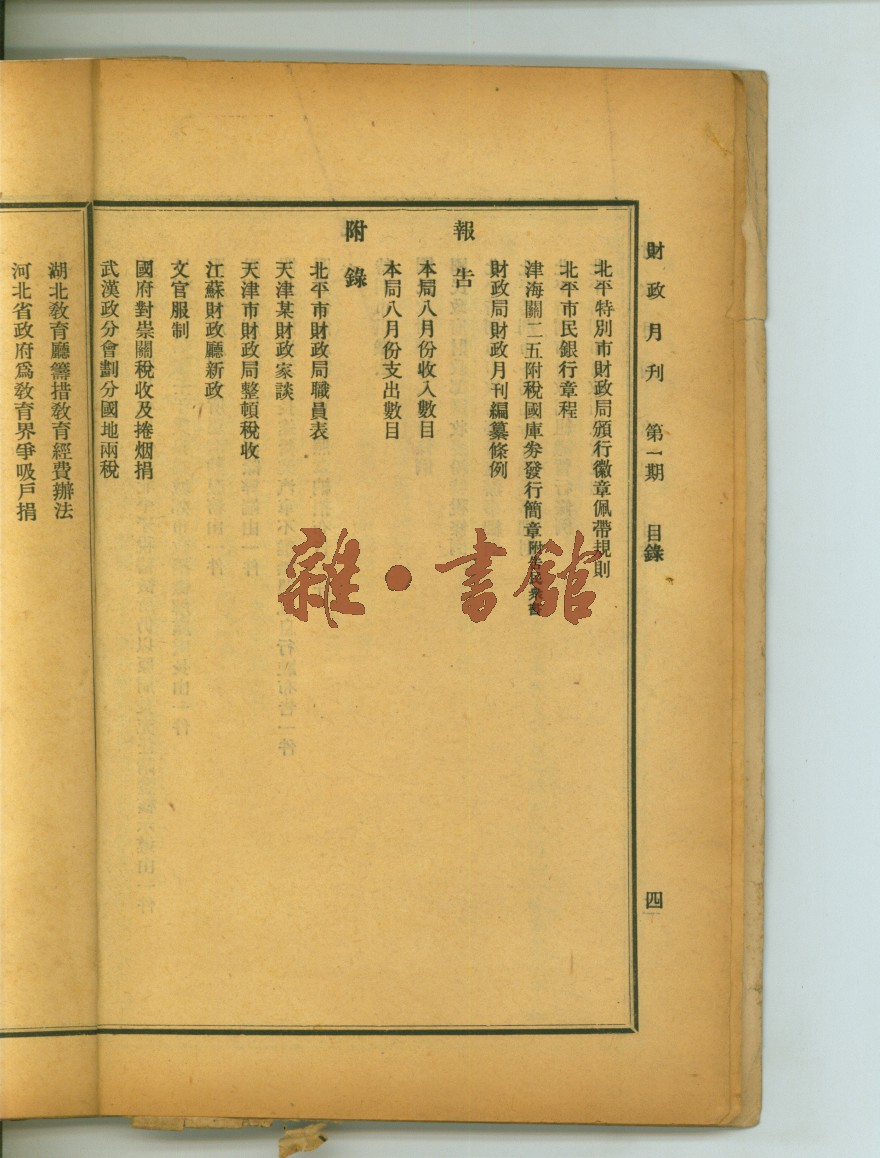 財政月刊 第一期 目錄 四
北平特別市財政局頒行徽章佩帶規則
北平市民銀行章程
津海關二五附稅國庫券發行簡章附告民衆書
財政局財政月刊編纂條例
報告
本局八月份收入數目
本局八月份支出數目
附錄
北平市財政局職員表
天津某財政家談
天津市財政局整頓稅收
江蘇財政廳新政
文官服制
國府對崇關稅收及捲烟捐
武漢政分會劃分國地兩稅
湖北教育廳籌措教育經費辦法
河北省政府爲教育界爭吸戶捐
雜·書館